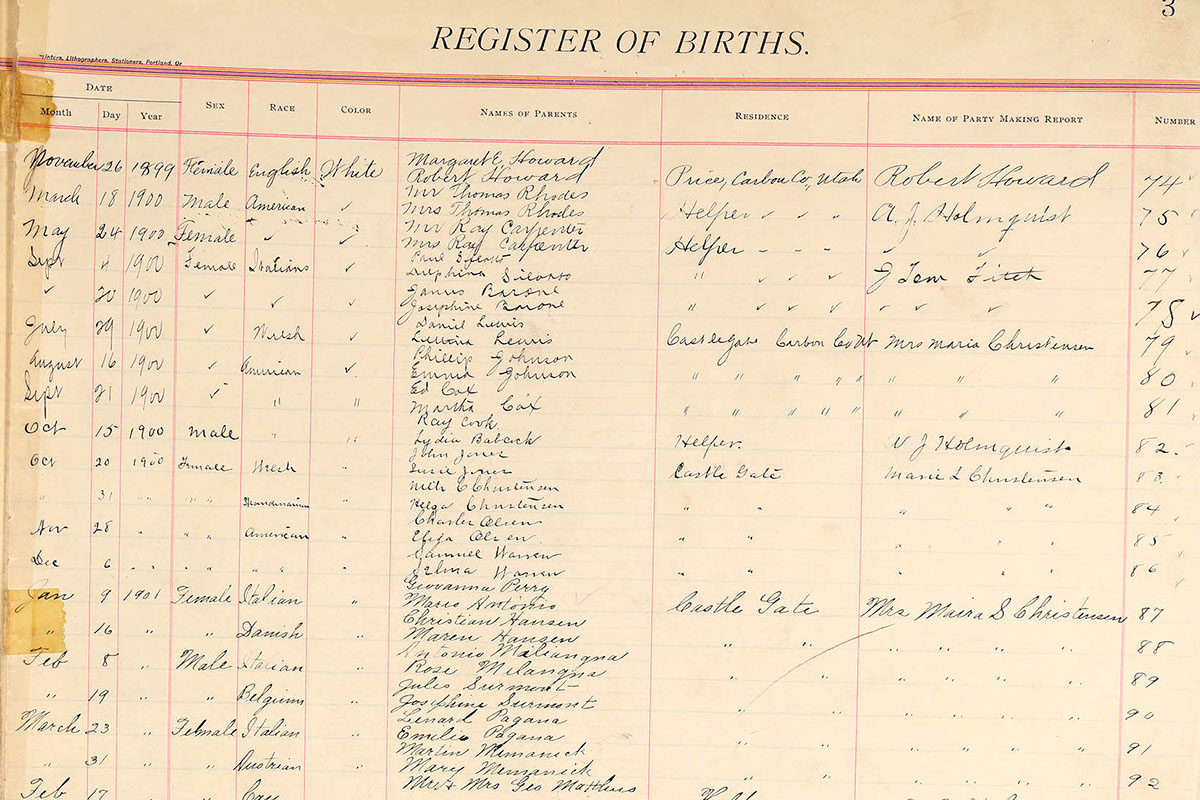 3
REGISTER OF BIRTHS.
Lithographers, Stationers, Portland,
DATE
Month Day Year SEX RACE COLOR NAMES OF PARENTS RESIDENCE NAME OF PARTY MAKING REPORT NUMBER
Margaret E. Howard
November 26 1899 Female English White Robert Howard Price, Carbon Co, Utah Robert Howard 74
Mr Thomas Rhodes
March 18 1900 Male American ✓ Mrs Thomas Rhodes Helper ✓ ✓ " A. J. Holmquist 75
Mr Ray Carpenter
May 24 1900 Female ✓ ✓ Mrs Ray Carpenter Helper - - " ✓ ✓ 76
Paul
Sept 4 1900 Female Italians ✓ " ✓ ✓ ✓ J Tom Fitch 77
James Barone
✓ 20 1900 ✓ ✓ ✓ Josephine Barone " ✓ ✓ ✓ ✓ ✓ ✓ 78
Daniel Lewis
July 29 1900 ✓ Welsh ✓ Lewis Castle gate Carbon Co Ut Mrs Maria Christensen 79
Phillip Johnson
August 16 1900 ✓ American ✓ Emma Johnson " " " " " " " " 80
Ed Cox
Sept 21 1900 ✓ " " Martha Cox " " " " " " " " 81
Ray Cook
Oct 15 1900 Male " " Lydia Babcock Helper. A J Holmquist 82
John Jones
Oct 20 1900 Female Welsh " Susie Jones Castle Gate Marie L Christensen 83
Christensen
" 31 " " " " Scandinavian " Helga Christensen " " " " " 84
Charles Olsen
Nov 28 " " " American " Eliza Olsen " " " " " 85
Samuel Warren
Dec 6 " " " " " " " Selma Warren " " " " " 86
Giovanna Perry
Jan 9 1901 Female Italian " Mario Antonio Castle Gate Mrs Maira S Christensen 87
Christian Hansen
" 16 " " Danish " Maren Hansen " " " " " " 88
Antonio Maliangna
Feb 8 " Male Italian " Rose Milangna " " " " " " 89
Jules Surmont
" 19 " " Belgium " Josephine Surmont " " " " " " 90
Lenard Pagana
March 23 " Female Italian " Emelie Pagana " " " " " " 91
Martin Memanick
" 31 " " Austrian " Mary Memanick " " " " " " 92
Mr & Mrs Geo Matthews
Feb 17